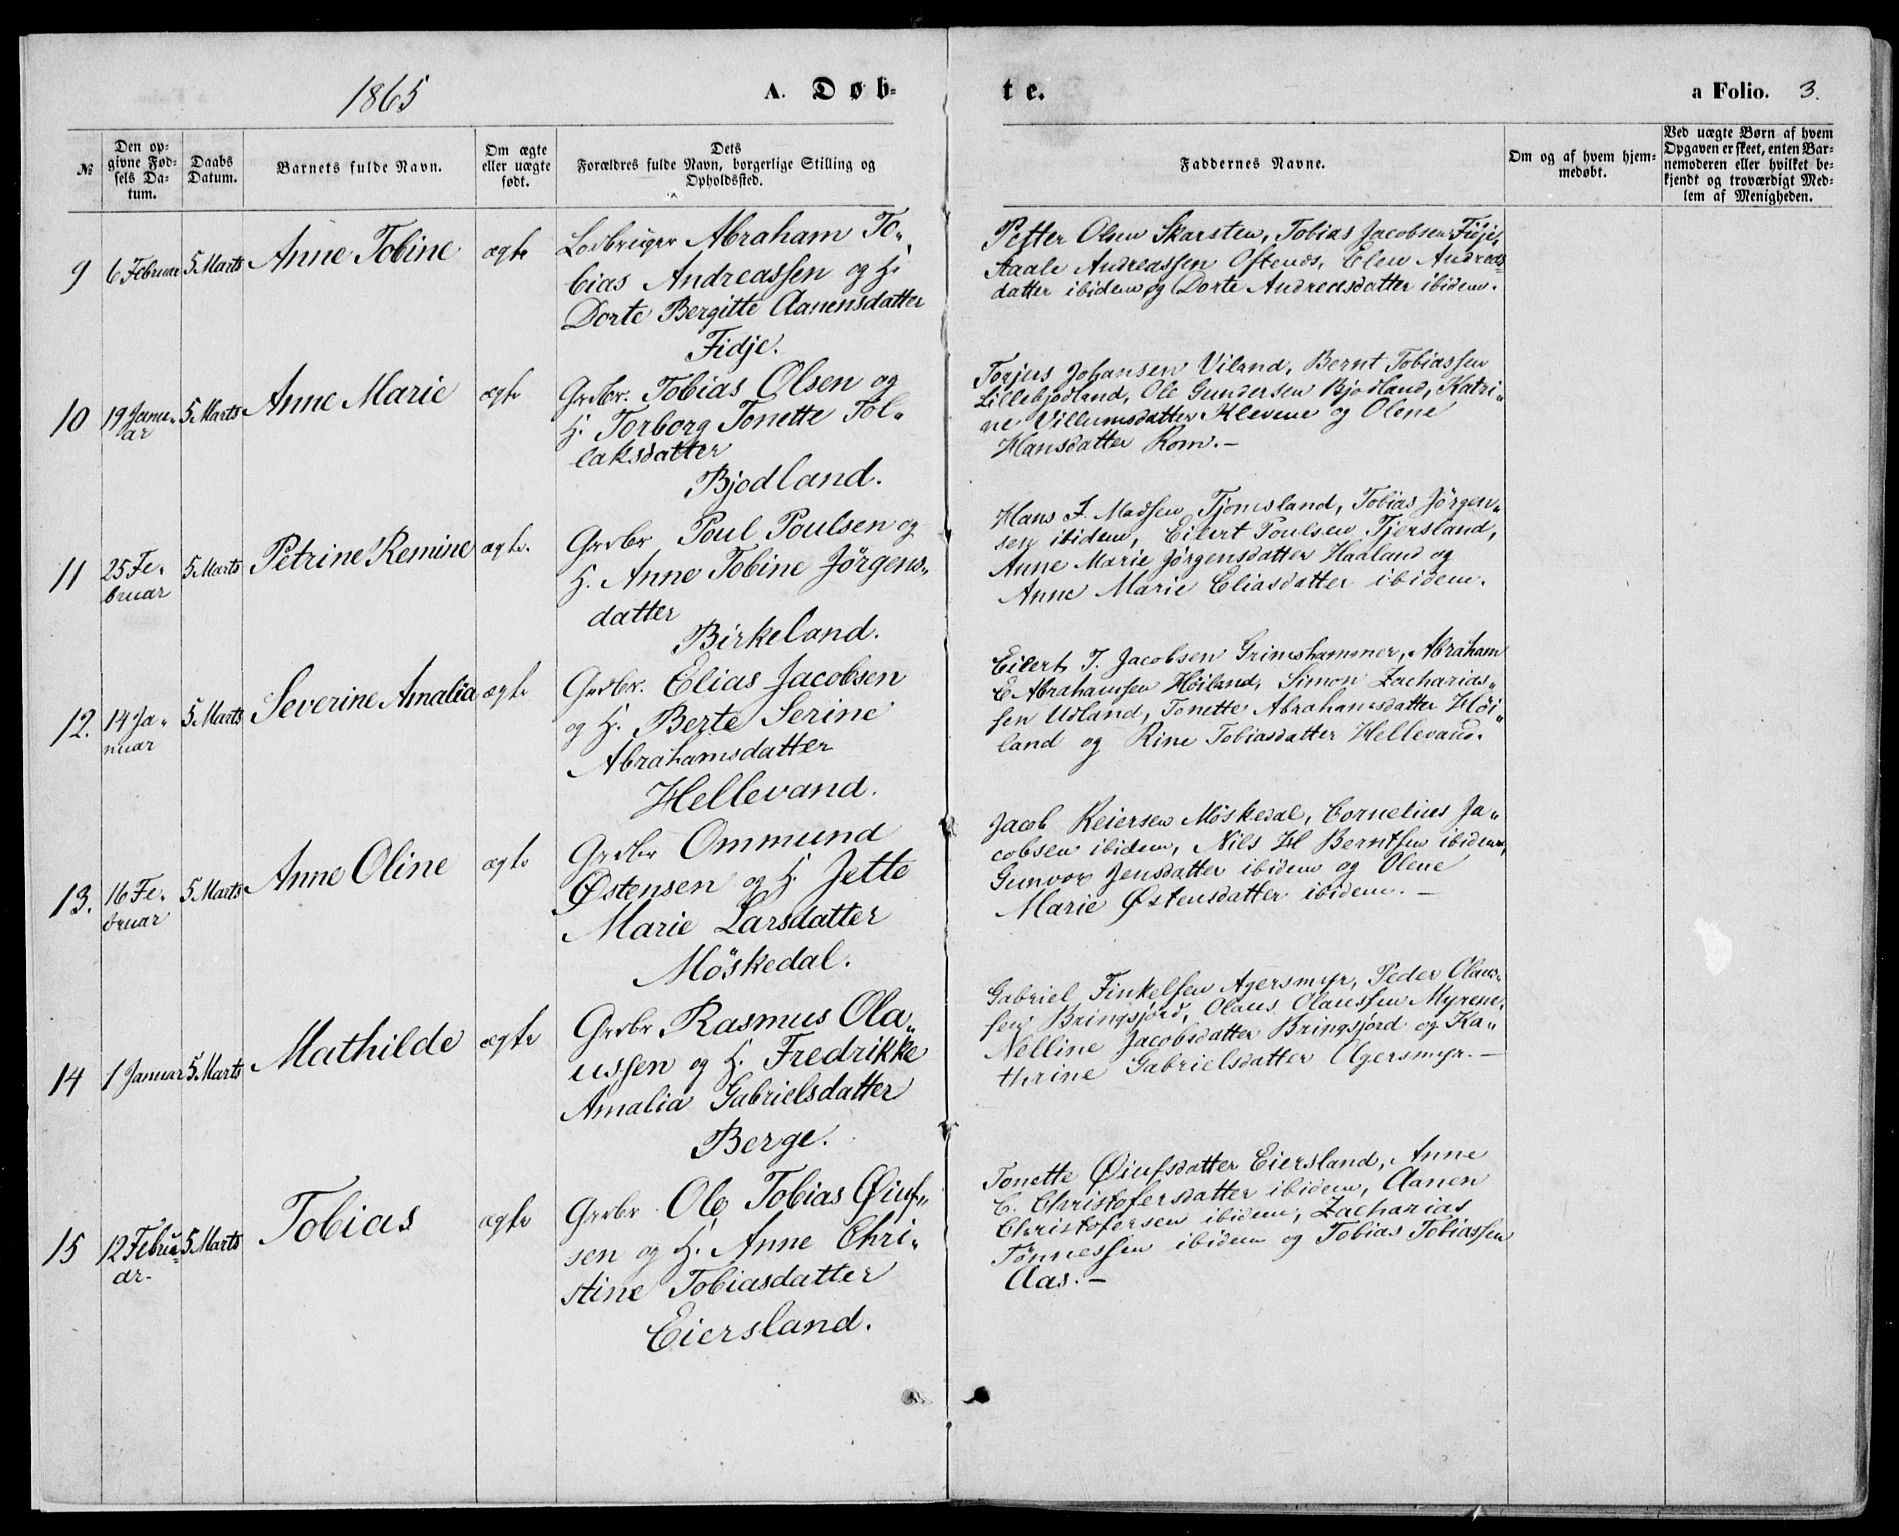 1865
A. Døb-
te.
a Folio. 3.
№
Den op-
givne Fød-
sels Da-
tum.
Daabs
Datum.
Barnets fulde Navn.
Om ægte
eller uægte
født.
Dets
Forældres fulde Navn, borgerlige Stilling og
Opholdssted.
Faddernes Navne.
Om og af hvem hjem-
medøbt.
Ved uægte Børn af hvem
Opgaven er skeet, enten Bar-
nemoderen eller hvilket be-
kjendt og troværdigt Med-
lem af Menigheden.
9 6 Februar 5 Marts Anne Tobine ægte
Abraham To„
bias Andreassen og H.
Dorte Bergitte Aanensdatter
Fidje.
Petter Olsen Skarsten, Tobias Jacobsen Fidje,
Staale Andreassen Oftenes, Elen Andreas-
datter ibidem og Dorte Andreasdatter ibidem.
10 19 Janu„
ar
5 Marts Anne Marie ægte
Grdbr. Tobias Olsen og
H. Torborg Tonette Tol„
laksdatter
Bjodland.
Torjus Johansen Viland, Bernt Tobiassen
Lillebjodland, Ole Gundersen Bjodland, Katri„
ne Villumsdatter Klevene og Olene
Hansdatter Rom.–
11 25 Fe„
bruar
5 Marts Petrine Remine ægte.
Grdbr Poul Poulsen og
H. Anne Tobine Jörgens„
datter
Birkeland.
Hans J. Madsen Tjomsland, Tobias Jörgen„
sen ibidem, Eilert Poulsen Tjersland,
Anne Marie Jörgensdatter Haaland og
Anne Marie Eliasdatter ibidem.
12. 14 Ja„
nuar
5 Marts Severine Amalia ægte
Grdbr. Elias Jacobsen
og H. Berte Serine
Abrahamsdatter
Hellevand.
Eilert T. Jacobsen Grimshammer, Abraham
E Abrahamsen Höiland, Simon Zacharias„
sen Udland, Tonette Abrahamsdatter Höi„
land og Rine Tobiasdatter Hellevand.
13. 16 Fe„
bruar
5 Marts Anne Oline ægte
Grdbr Ommund
Østensen og H. Jette
Marie Larsdatter
Möskedal.
Jacob Reiersen Möskedal, Cornelius Ja„
cobsen ibidem, Nils H Berntsen ibidem,
Gunvor Jensdatter ibidem og Olene
Marie Østensdatter ibidem.–
14 1 Januar 5 Marts Mathilde ægte
Grdbr Rasmus Ola„
ussen og H. Fredrikke
Amalia Gabrielsdatter
Berge.
Gabriel Finkelsen Agersmyr, Peder Olaus„
sen Bringsjord, Olaus Olaussen Myrene,
Nelline Jacobsdatter Bringsjord og Ka„
thrine Gabrielsdatter Agersmyr.–
15 12 Febru„
ar.
5 Marts Tobias ægte
Grdbr Ole Tobias Øiuf„
sen og H. Anne Chri„
stine Tobiasdatter
Eiersland.
Tonette Øiufsdatter Eiersland, Anne
C. Christofersdatter ibidem, Aanen
Christofersen ibidem, Zacharias
Tönnessen ibidem og Tobias Tobiassen
Aas.–